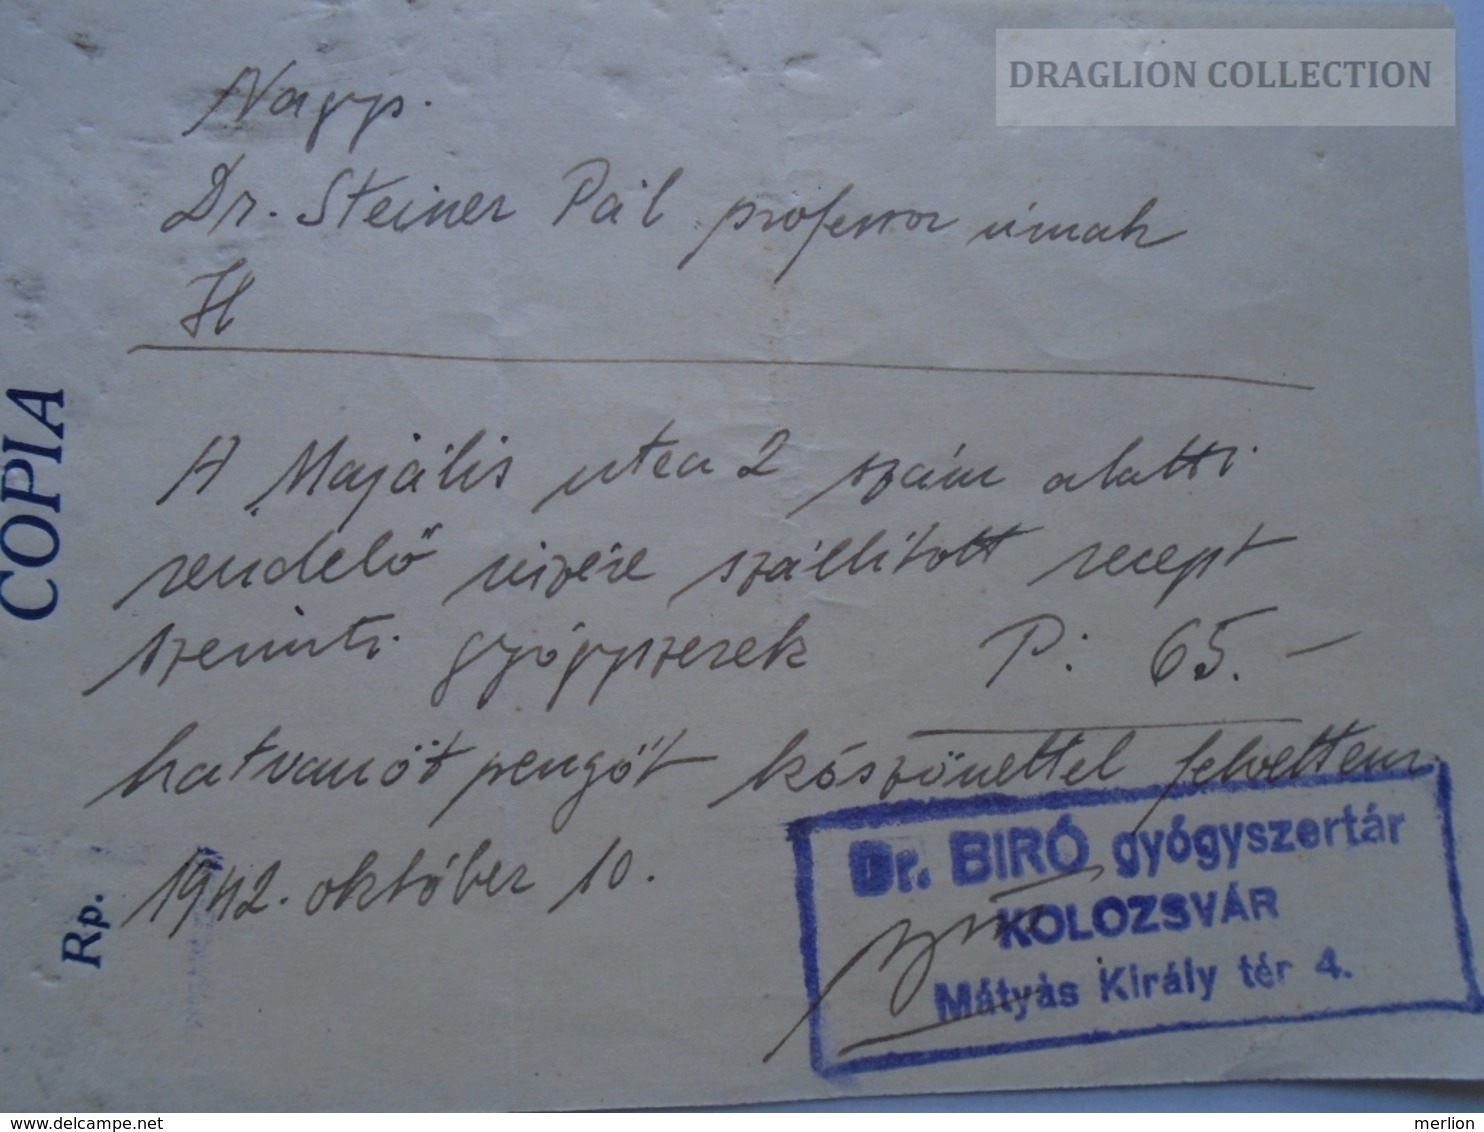 DRAGLION COLLECTION
Nagys.
Dr. Steiner Pál professor úrnak
H
COPIA
A Majális utca 2 szám alatti
rendelő részére szállított recept
szerinti gyógyszerek P: 65.-
hatvanöt pengőt köszönettel felvettem
1942. október 10.
Rp.
Dr. BIRÓ gyógyszertár
KOLOZSVÁR
Mátyás Király tér 4.
delcampe.net
merlion